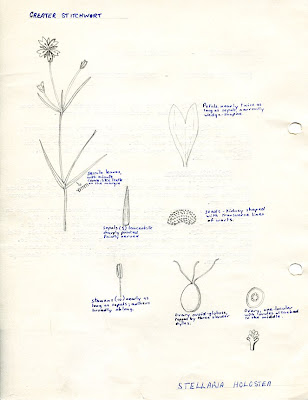 GREATER STITCHWORT
Petals nearly twice as
long as sepals, narrowly
wedge-shaped
Sessile leaves,
with minute
comb-like teeth
on the margin
Sepals (5) lanceolate
sharply pointed
faintly nerved
Seeds - kidney shaped
with transverse lines
of warts.
Stamens (10) nearly as
long as sepals; anthers
broadly oblong.
Ovary ovoid-globose,
topped by three slender
styles.
Ovary, one-locular
with ovules attached
in the middle.
STELLARIA HOLOSTEA